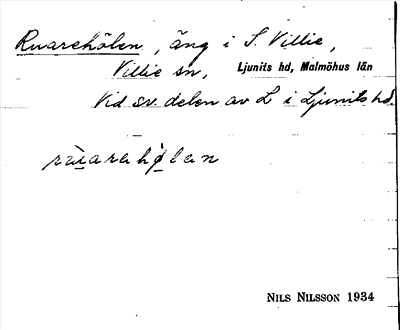 Ruarehölen, äng i S. Villie,
Villie sn, Ljunits hd, Malmöhus län
Vid sv. delen av L i Ljunits hd.
rùarahølan
NILS NILSSON 1934